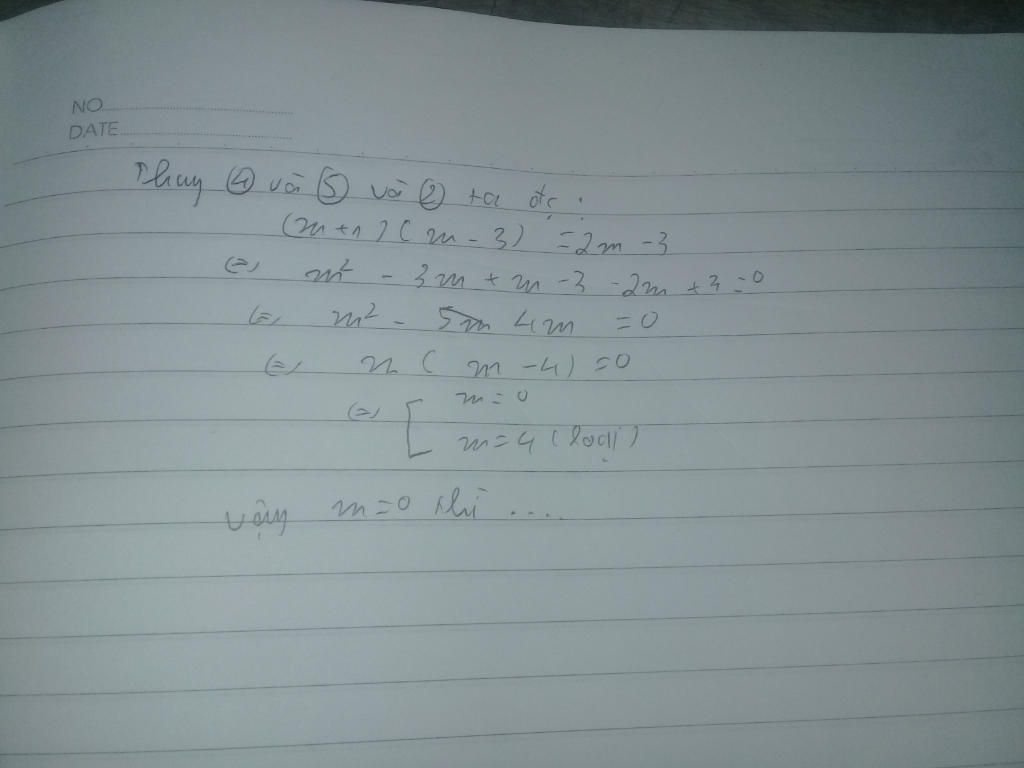 NO
DATE
Thay ④ và ⑤ và ② ta đc :
(m+1)(m-3) = 2m-3
(=) m² - 3m + m - 3 - 2m + 3 = 0
(=) m² - 4m = 0
(=) m(m-4) = 0
(=) [ m = 0
m = 4 (loại)
Vậy m = 0 thì ....